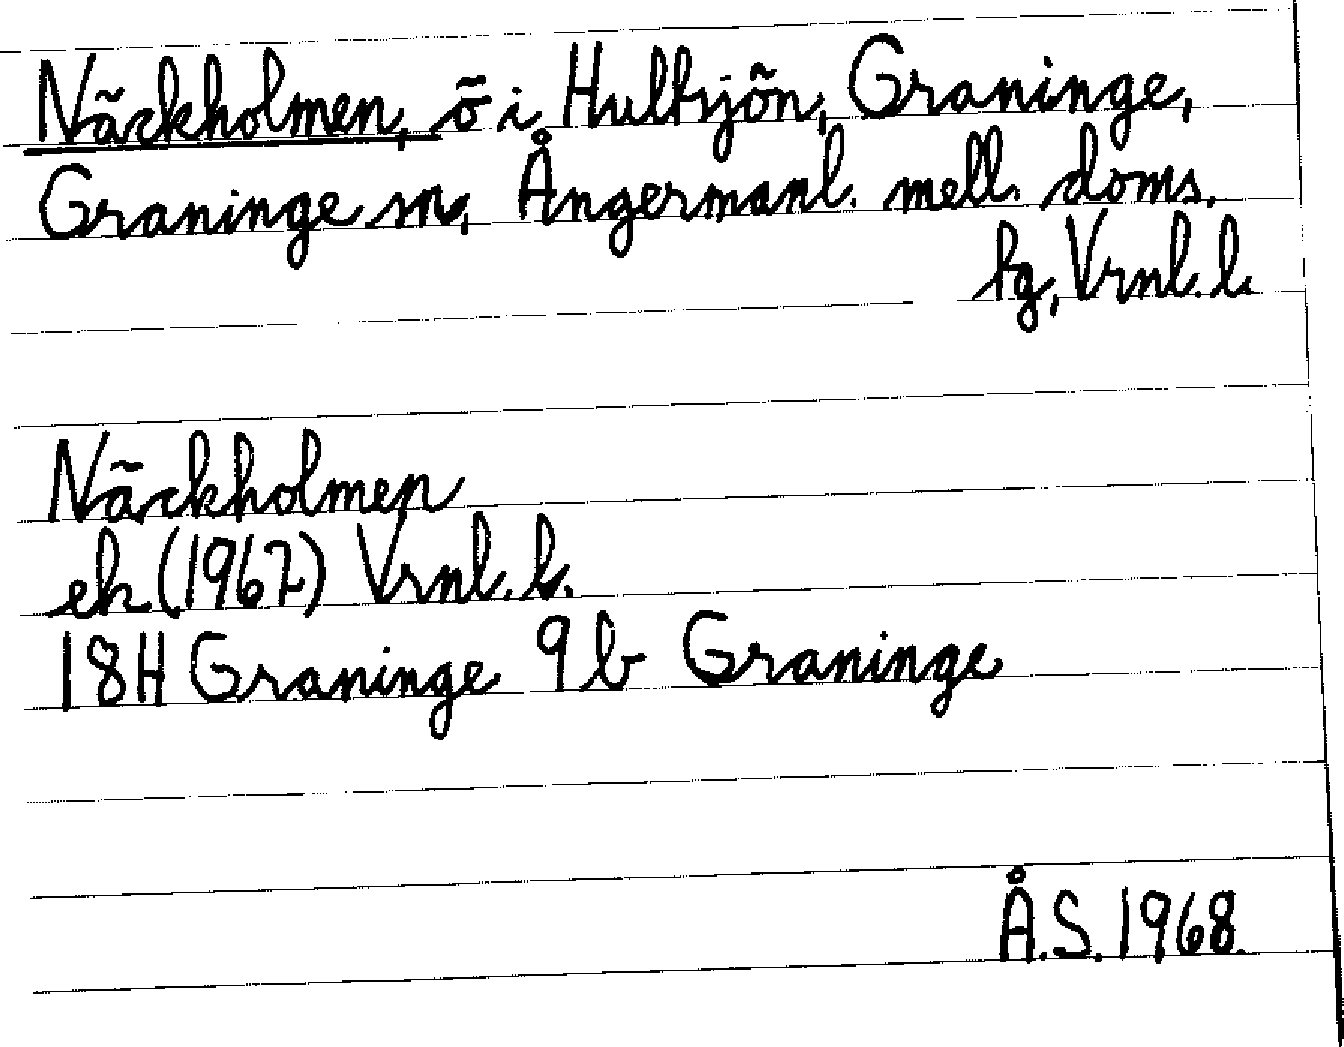 Näckholmen, ö i Hultsjön, Graninge,
Graninge sn, Ångermanl. mell. doms.
fg, Vrnl. l.
Näckholmen
ek (1967) Vrnl. l.
18H Graninge 9b Graninge
Å.S. 1968.